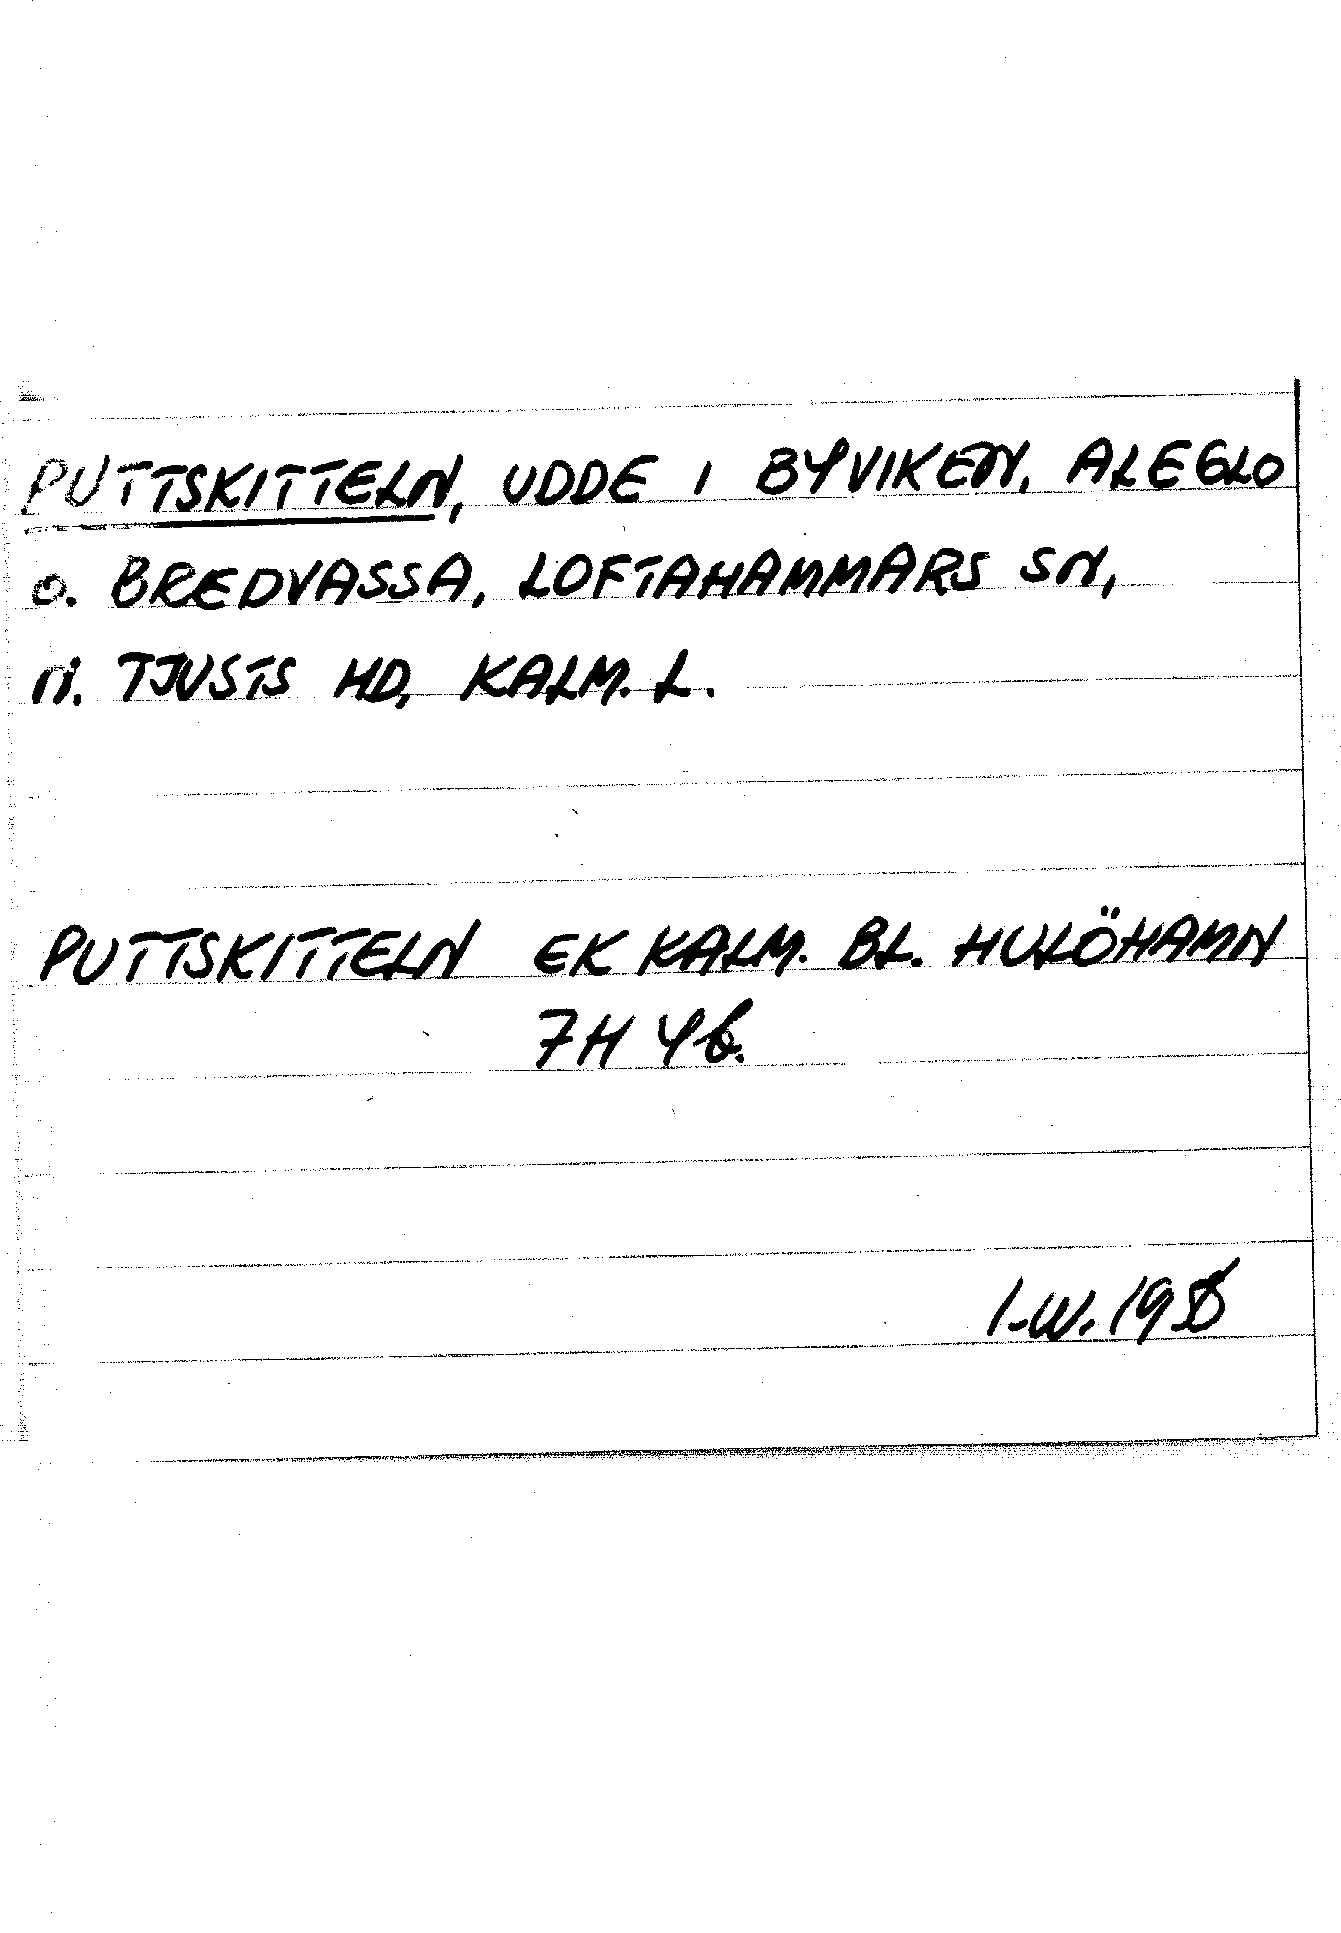 PUTTSKITTELN, UDDE I BYVIKEN, ALEGLO
O. BREDVASSA, LOFTAHAMMARS SN,
N. TJUSTS HD, KALM. L.
PUTTSKITTELN EK KALM. BL. HULÖHAMN
7H 4b.
I-W.